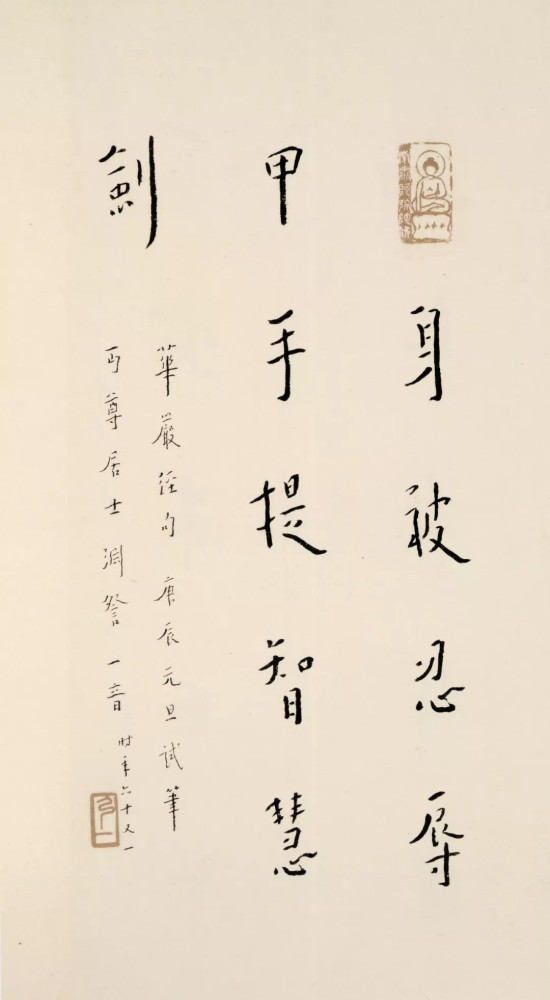 身被忍辱
甲手提智慧
劍
華嚴經句 庚辰元旦試筆
丏尊居士淵詧 一音 時年六十又一
弘一